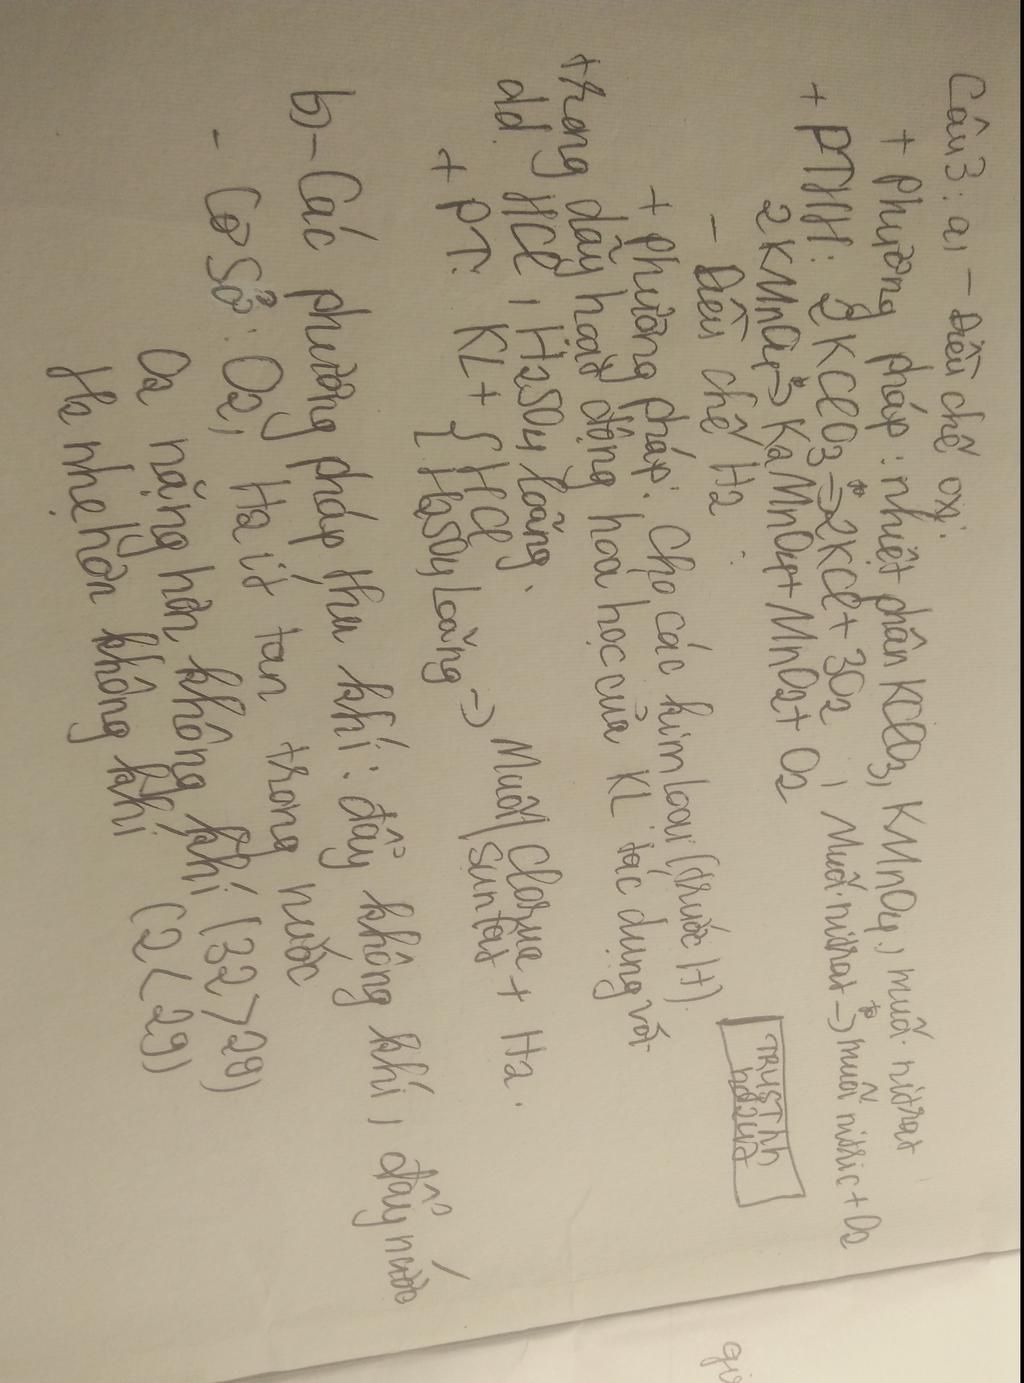 Câu 3: a, - Điều chế oxi.
+ Phương pháp: nhiệt phân KClO3, KMnO4, muối nitrat
+ PTHH: 2KClO3 -t°-> 2KCl + 3O2, Muối nitrat -t°-> muối nitric + O2
2KMnO4 -t°-> K2MnO4 + MnO2 + O2
- Điều chế H2.
+ Phương pháp: Cho các kim loại (trước H)
trong dãy hoạt động hoá học của KL tác dụng với
dd HCl, H2SO4 loãng.
+ PT: KL + { HCl H2SO4 Loãng -> Muối clorua sunfat + H2.
b, - Các phương pháp thu khí: đẩy không khí, đẩy nước
- Cơ sở: O2, H2 ít tan trong nước
O2 nặng hơn không khí (32 > 29)
H2 nhẹ hơn không khí (2 < 29)